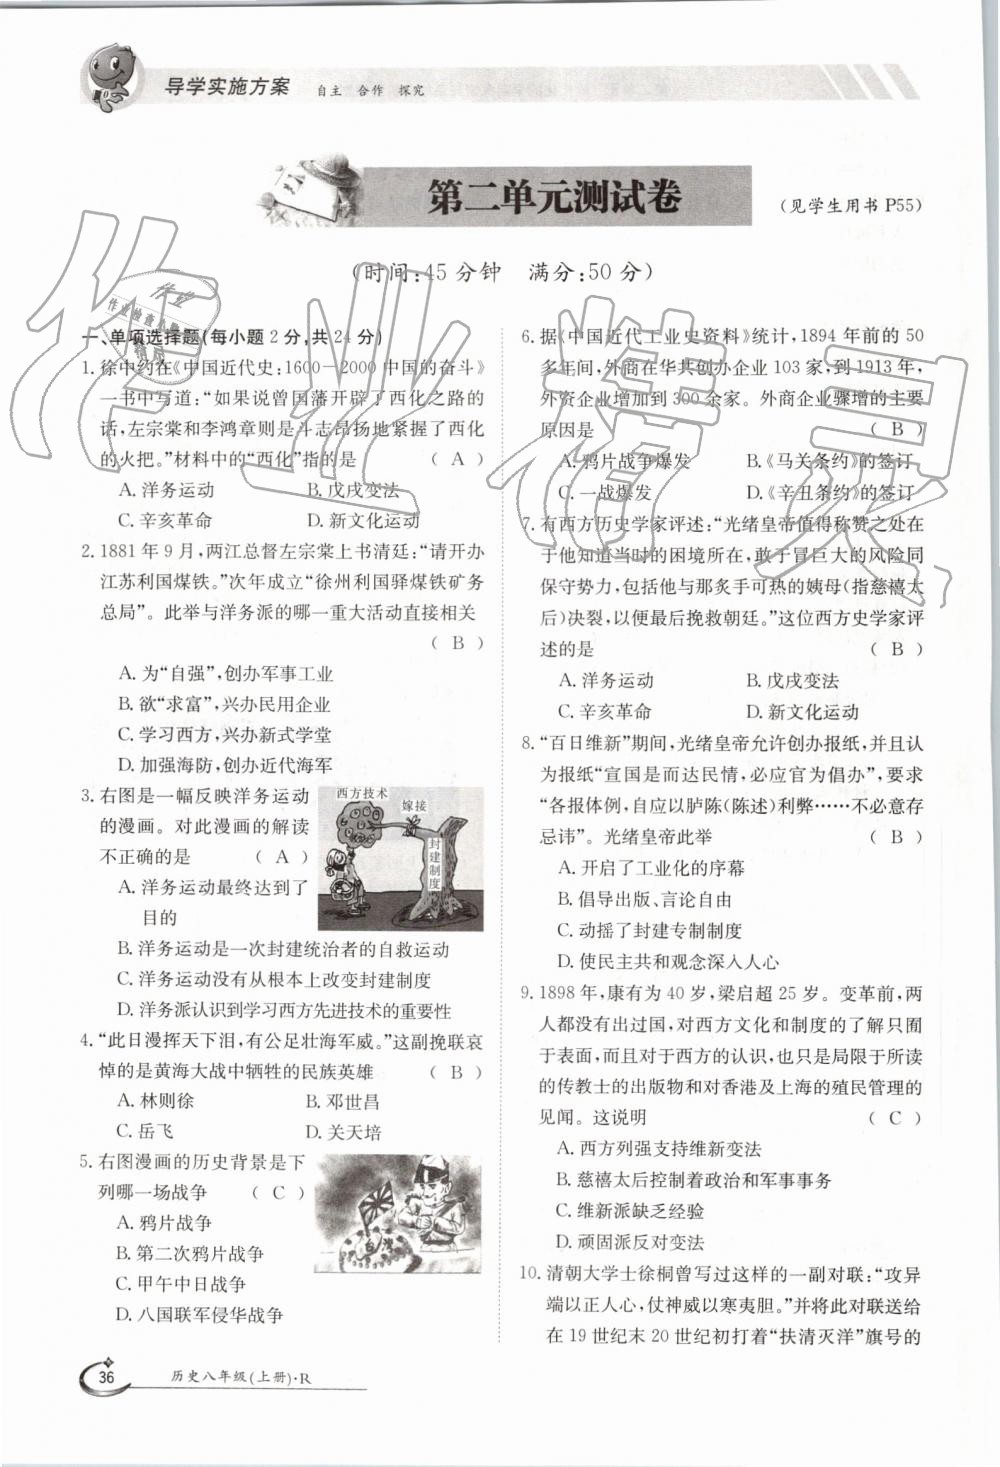 导学实施方案 自主 合作 探究
第二单元测试卷
(见学生用书 P55)
(时间:45 分钟 满分:50 分)
一、单项选择题(每小题 2 分,共 24 分)
1. 徐中约在《中国近代史:1600—2000 中国的奋斗》
一书中写道:“如果说曾国藩开辟了西化之路的
话,左宗棠和李鸿章则是斗志昂扬地紧握了西化
的火把。”材料中的“西化”指的是 ( A )
A. 洋务运动 B. 戊戌变法
C. 辛亥革命 D. 新文化运动
2. 1881 年 9 月,两江总督左宗棠上书清廷:“请开办
江苏利国煤铁。”次年成立“徐州利国驿煤铁矿务
总局”。此举与洋务派的哪一重大活动直接相关
( B )
A. 为“自强”,创办军事工业
B. 欲“求富”,兴办民用企业
C. 学习西方,兴办新式学堂
D. 加强海防,创办近代海军
3. 右图是一幅反映洋务运动
的漫画。对此漫画的解读
不正确的是 ( A )
西方技术
嫁接
封建制度
A. 洋务运动最终达到了
目的
B. 洋务运动是一次封建统治者的自救运动
C. 洋务运动没有从根本上改变封建制度
D. 洋务派认识到学习西方先进技术的重要性
4. “此日漫挥天下泪,有公足壮海军威。”这副挽联哀
悼的是黄海大战中牺牲的民族英雄 ( B )
A. 林则徐 B. 邓世昌
C. 岳飞 D. 关天培
5. 右图漫画的历史背景是下
列哪一场战争 ( C )
台湾
A. 鸦片战争
B. 第二次鸦片战争
C. 甲午中日战争
D. 八国联军侵华战争
6. 据《中国近代工业史资料》统计,1894 年前的 50
多年间,外商在华共创办企业 103 家,到 1913 年,
外资企业增加到 300 余家。外商企业骤增的主要
原因是 ( B )
A. 鸦片战争爆发 B.《马关条约》的签订
C. 一战爆发 D.《辛丑条约》的签订
7. 有西方历史学家评述:“光绪皇帝值得称赞之处在
于他知道当时的困境所在,敢于冒巨大的风险同
保守势力,包括他与那炙手可热的姨母(指慈禧太
后)决裂,以便最后挽救朝廷。”这位西方史学家评
述的是 ( B )
A. 洋务运动 B. 戊戌变法
C. 辛亥革命 D. 新文化运动
8. “百日维新”期间,光绪皇帝允许创办报纸,并且认
为报纸“宣国是而达民情,必应官为倡办”,要求
“各报体例,自应以胪陈(陈述)利弊……不必意存
忌讳”。光绪皇帝此举 ( B )
A. 开启了工业化的序幕
B. 倡导出版、言论自由
C. 动摇了封建专制制度
D. 使民主共和观念深入人心
9. 1898 年,康有为 40 岁,梁启超 25 岁。变革前,两
人都没有出过国,对西方文化和制度的了解只囿
于表面,而且对于西方的认识,也只是局限于所读
的传教士的出版物和对香港及上海的殖民管理的
见闻。这说明 ( C )
A. 西方列强支持维新变法
B. 慈禧太后控制着政治和军事事务
C. 维新派缺乏经验
D. 顽固派反对变法
10. 清朝大学士徐桐曾写过这样的一副对联:“攻异
端以正人心,仗神威以寒夷胆。”并将此对联送给
在 19 世纪末 20 世纪初打着“扶清灭洋”旗号的
36 历史八年级(上册)·R
作业精灵